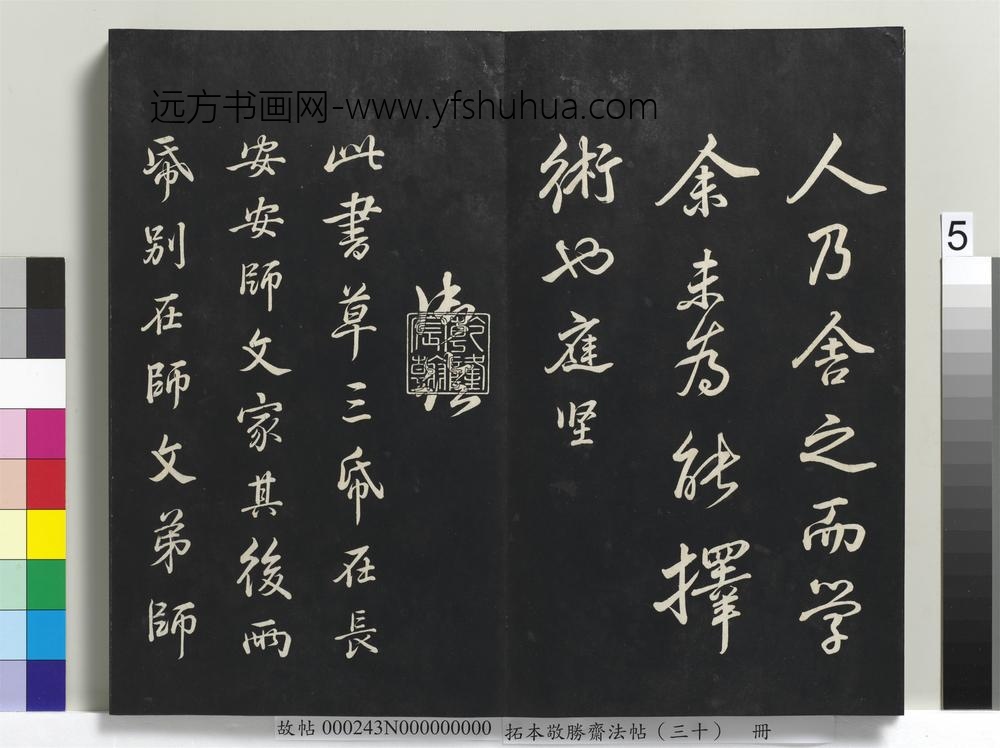 远方书画网-www.yfshuhua.com
人乃舍之而学
余未为能擇
術也庭坚
乾隆宸翰
此書草三帋在長
安安師文家其後兩
帋别在師文弟師
5
故帖 000243N000000000 拓本敬勝齋法帖（三十） 冊